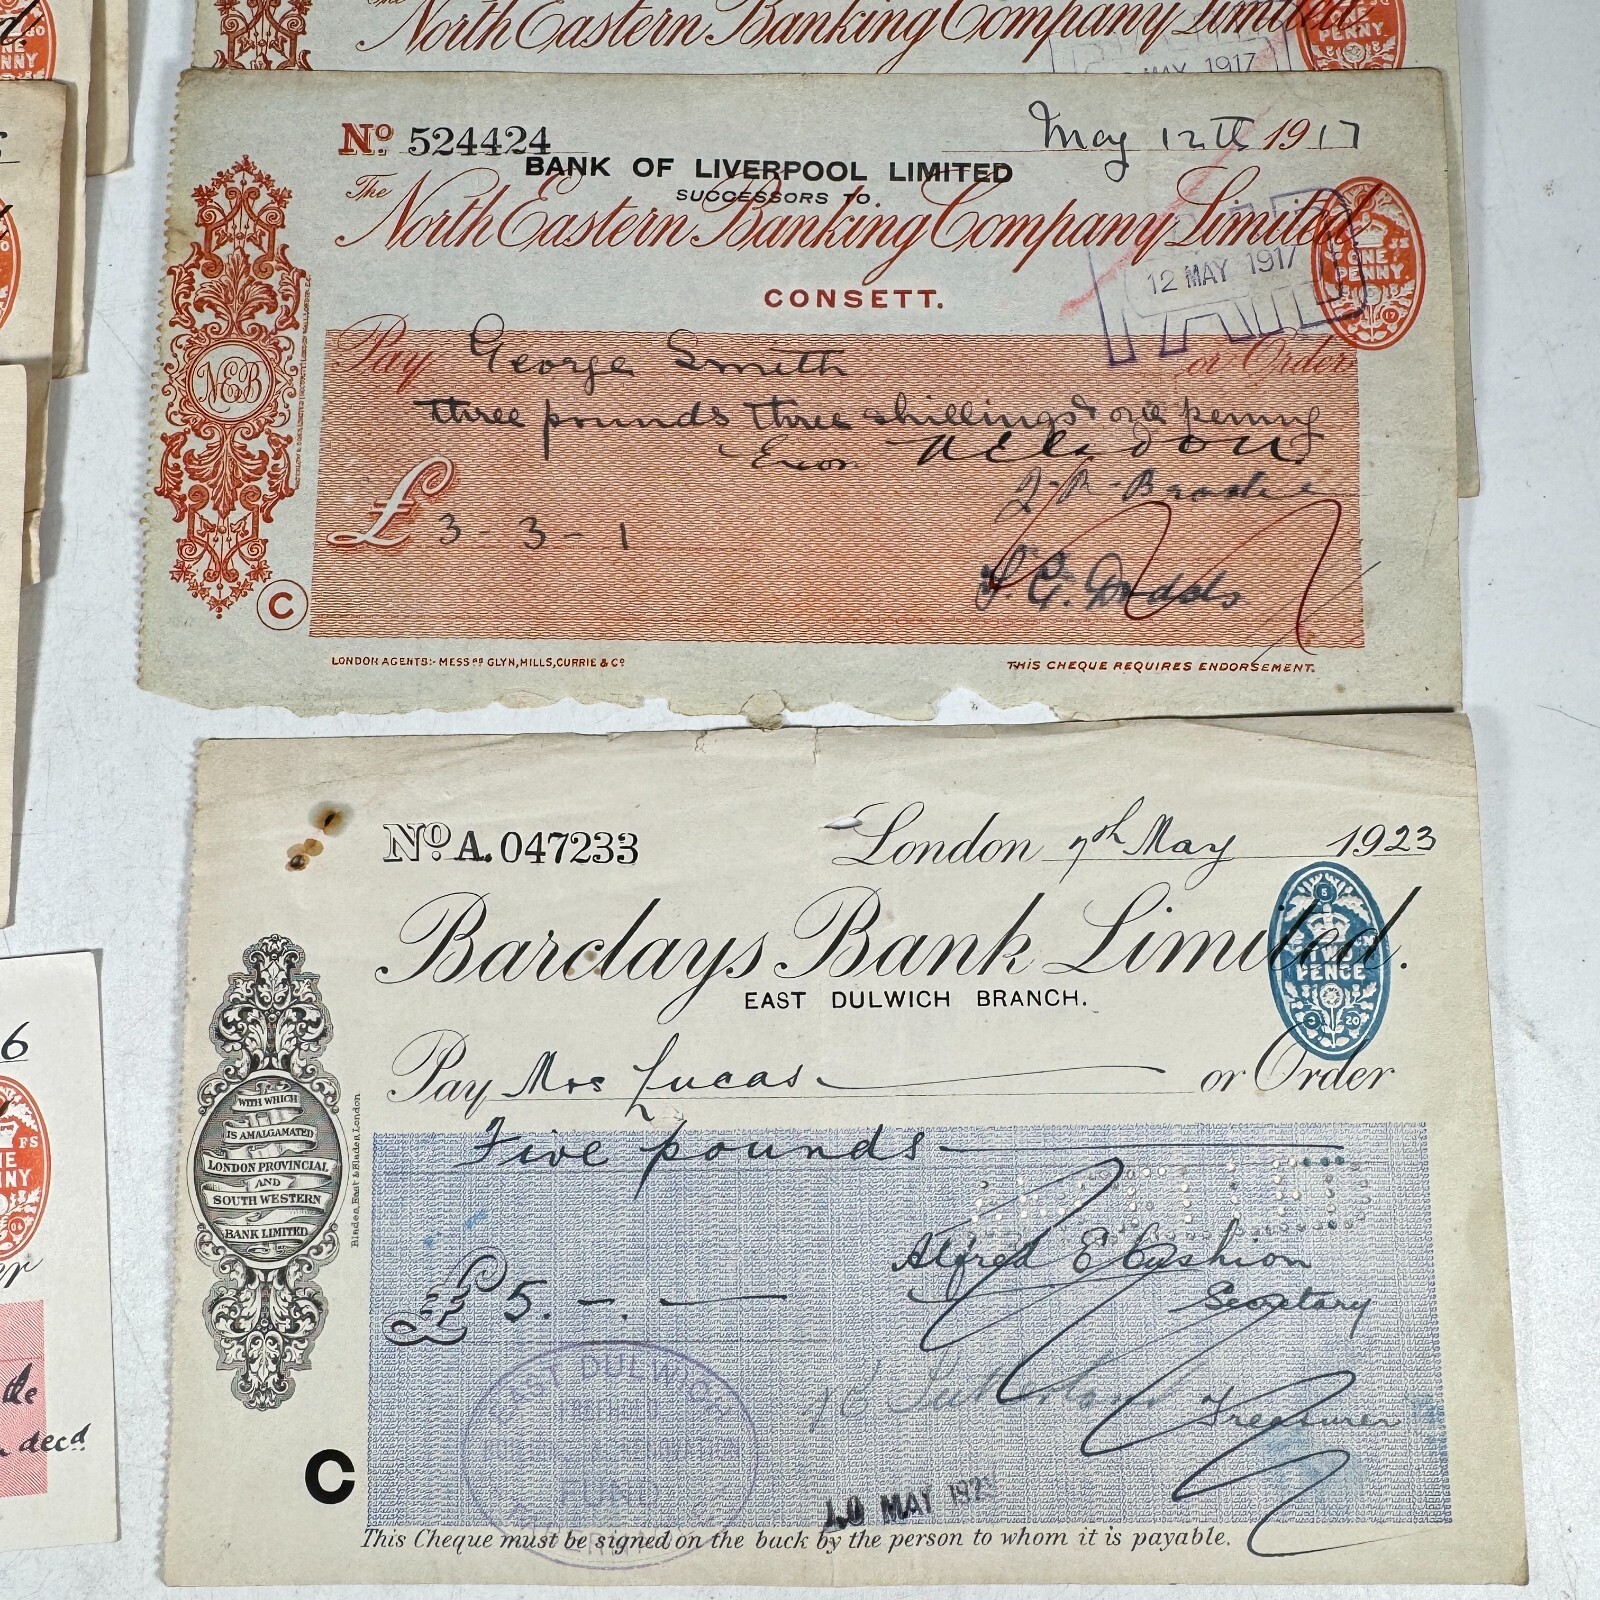 The North Eastern Banking Company Limited
PENNY
MAY 1917
No 524424
May 12th 1917
BANK OF LIVERPOOL LIMITED
SUCCESSORS TO
The North Eastern Banking Company Limited
CONSETT.
PAID
12 MAY 1917
ONE
PENNY.
NEB
Pay George Smith or Order
three pounds three shillings & one penny
£ 3 - 3 - 1
C
LONDON AGENTS:- MESSRS GLYN, MILLS, CURRIE & CO
THIS CHEQUE REQUIRES ENDORSEMENT.
No. A. 047233
London 7th May 1923
Barclays Bank Limited.
EAST DULWICH BRANCH.
TWO
PENCE
Pay Mrs Lucas or Order
Five pounds
WITH WHICH
IS AMALGAMATED
LONDON PROVINCIAL
AND
SOUTH WESTERN
BANK LIMITED
Blades, East & Blades, London
Alfred E Cushion
Secretary
£ 5. - . -
Treasurer
EAST DULWICH
FUND
C
10 MAY 1923
This Cheque must be signed on the back by the person to whom it is payable.
6
decd